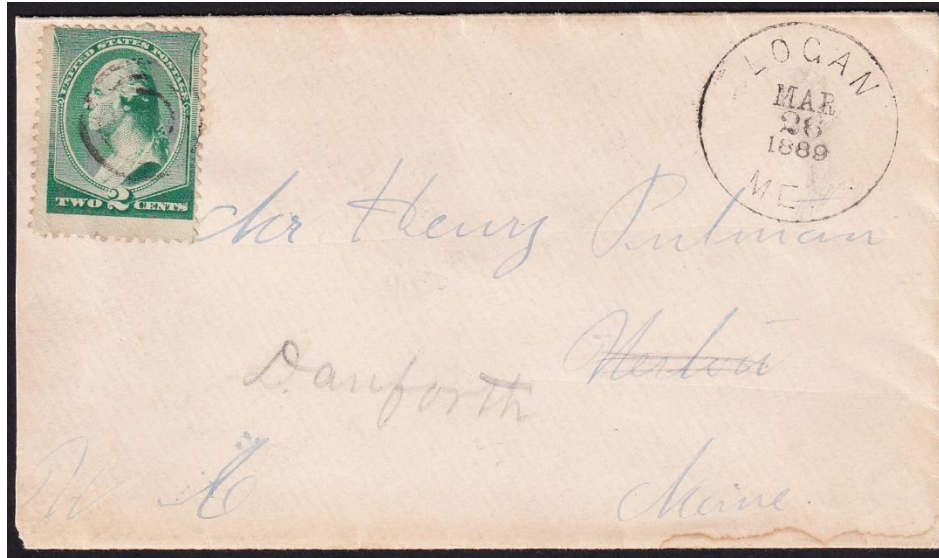 UNITED STATES POSTAGE
TWO 2 CENTS
LOGAN
MAR
26
1889
ME.
Mr Henry Putman
Danforth
Maine.